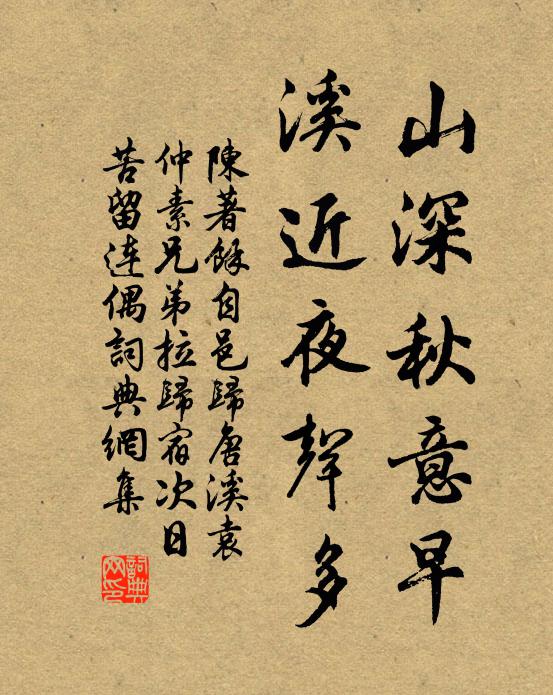 山深秋意早
溪近夜聲多
陳著餘自邑歸唐溪袁
仲素兄弟拉歸宿次日
苦留連偶詞典網集
詞典
网印